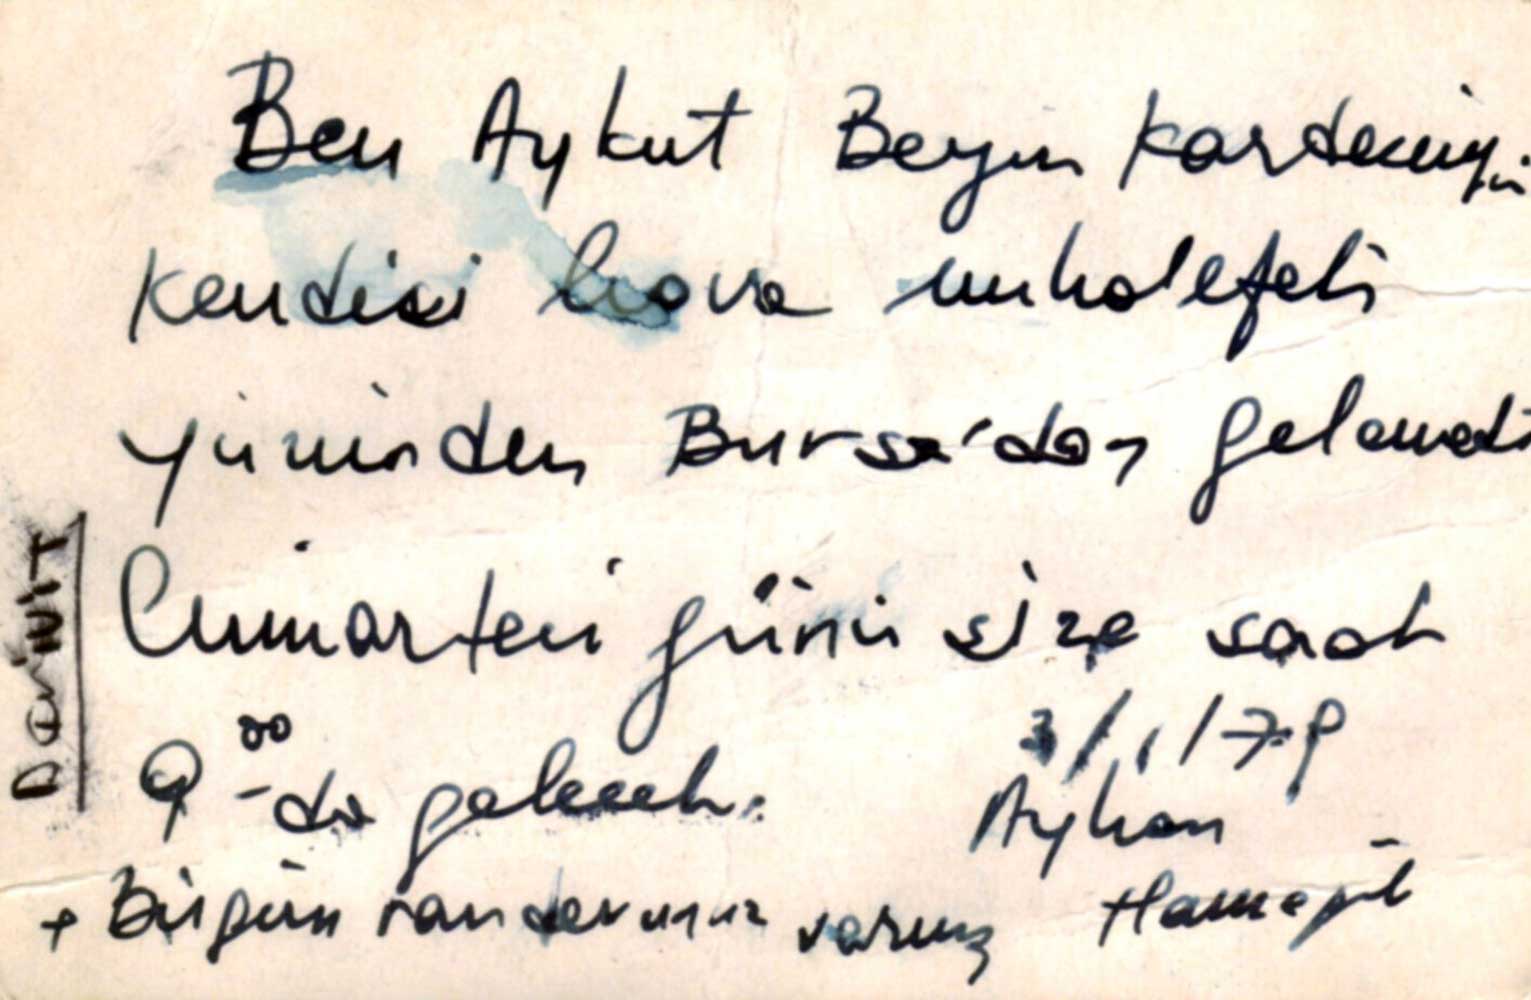 Ben Aykut Beyin kardeşiyi
Kendisi hava muhalefeti
yüzünden Bursa'dan gelemedi
Cumartesi günü size saat
9⁰⁰ - da gelecek.
3/1/79
Ayhan
+ Bugün randevunuz varmış